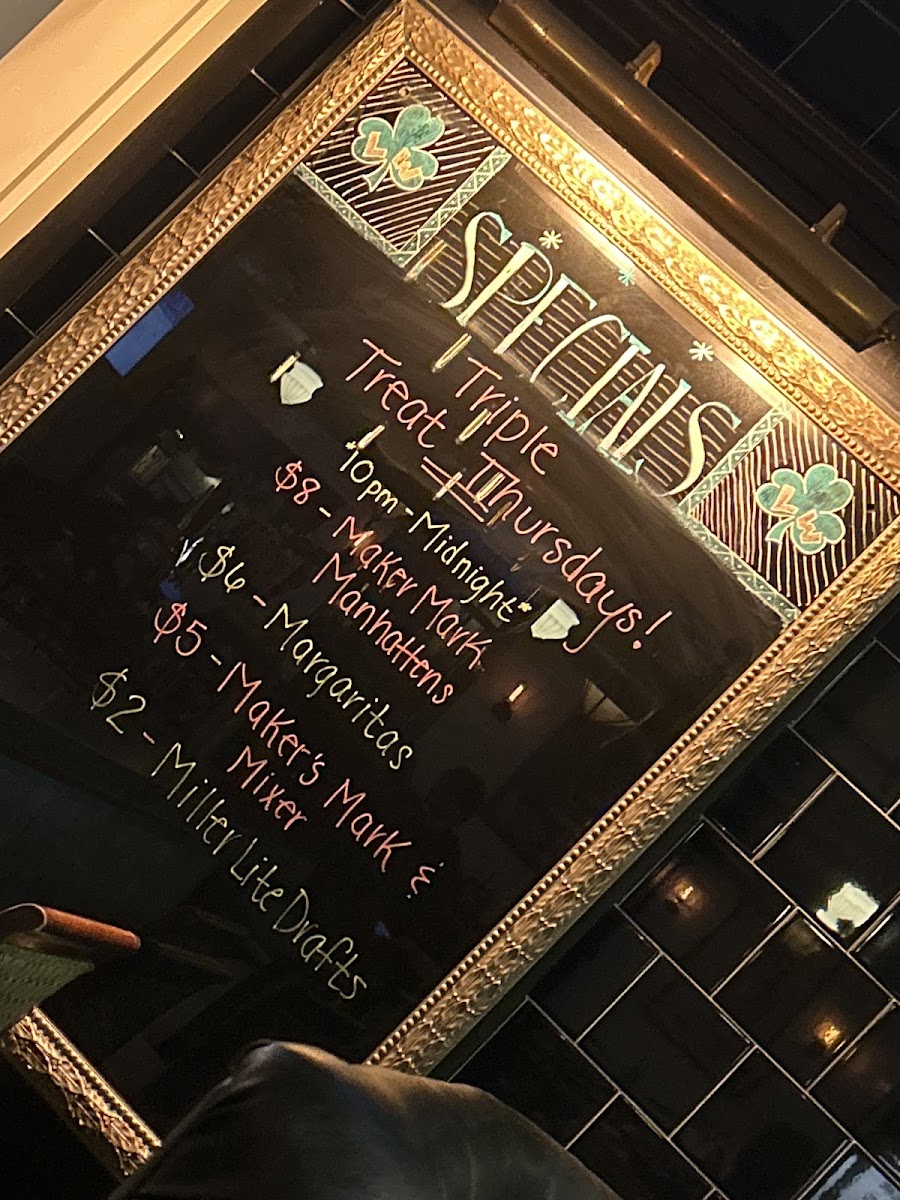 LW
SPECIALS
LW
Triple
Treat Thursdays!
*10pm-Midnight*
$8 - Maker Mark
Manhattens
$6 - Margaritas
$5 - Maker's Mark &
Mixer
$2 - Miller Lite Drafts